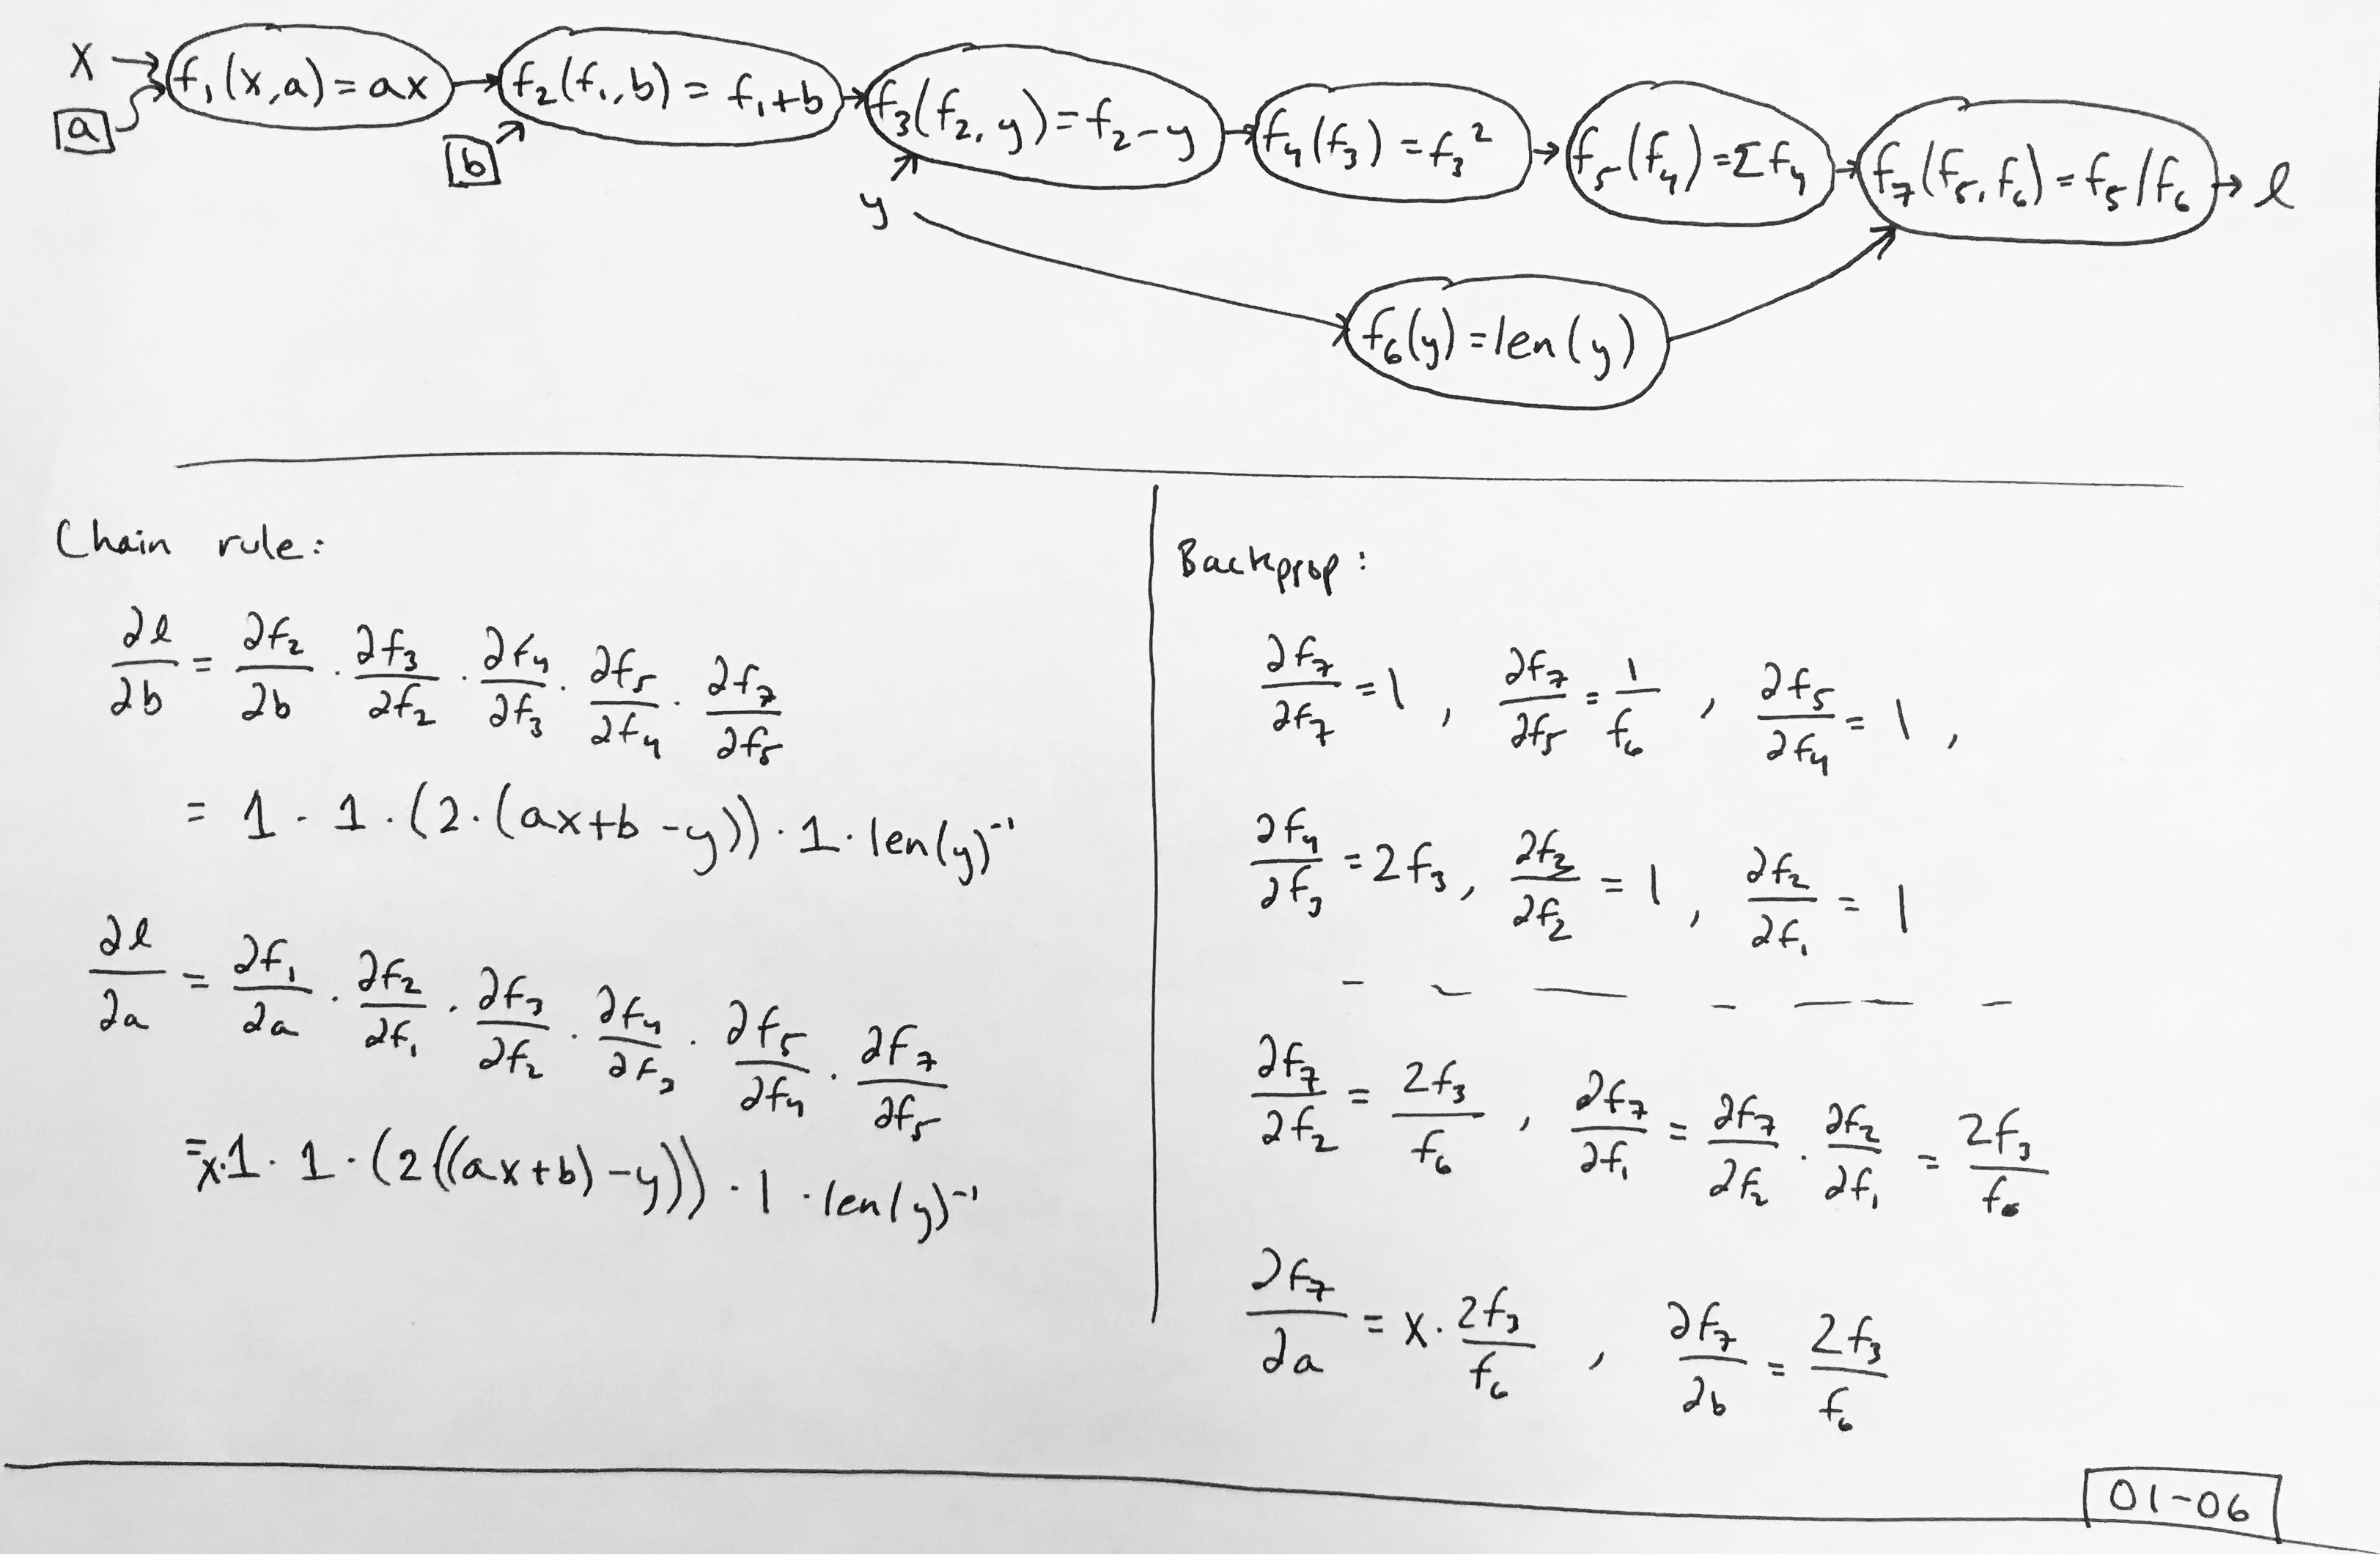 x
a
f₁(x,a) = ax
b
f₂(f₁,b) = f₁+b
y
f₃(f₂,y) = f₂-y
f₄(f₃) = f₃²
f₅(f₄) = Σf₄
f₇(f₅,f₆) = f₅/f₆
ℓ
f₆(y) = len(y)
Chain rule:
∂ℓ/∂b = ∂f₂/∂b · ∂f₃/∂f₂ · ∂f₄/∂f₃ · ∂f₅/∂f₄ · ∂f₇/∂f₅
= 1 · 1 · (2·(ax+b-y)) · 1 · len(y)⁻¹
∂ℓ/∂a = ∂f₁/∂a · ∂f₂/∂f₁ · ∂f₃/∂f₂ · ∂f₄/∂f₃ · ∂f₅/∂f₄ · ∂f₇/∂f₅
= x·1 · 1 · (2((ax+b)-y)) · 1 · len(y)⁻¹
Backprop:
∂f₇/∂f₇ = 1, ∂f₇/∂f₅ = 1/f₆, ∂f₅/∂f₄ = 1,
∂f₄/∂f₃ = 2f₃, ∂f₃/∂f₂ = 1, ∂f₂/∂f₁ = 1
∂f₇/∂f₂ = 2f₃/f₆, ∂f₇/∂f₁ = ∂f₇/∂f₂ · ∂f₂/∂f₁ = 2f₃/f₆
∂f₇/∂a = x · 2f₃/f₆, ∂f₇/∂b = 2f₃/f₆
01-06